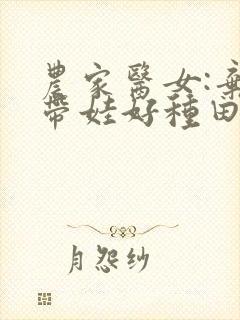 農家醫女:
帶娃好種田
月怨纱